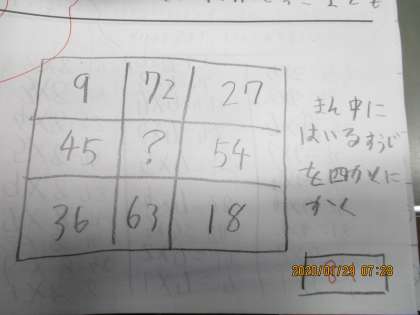 9 72 27
45 ? 54
36 63 18
まん中に
はいるすうじ
を四かくに
かく
2020/01/29 07:28